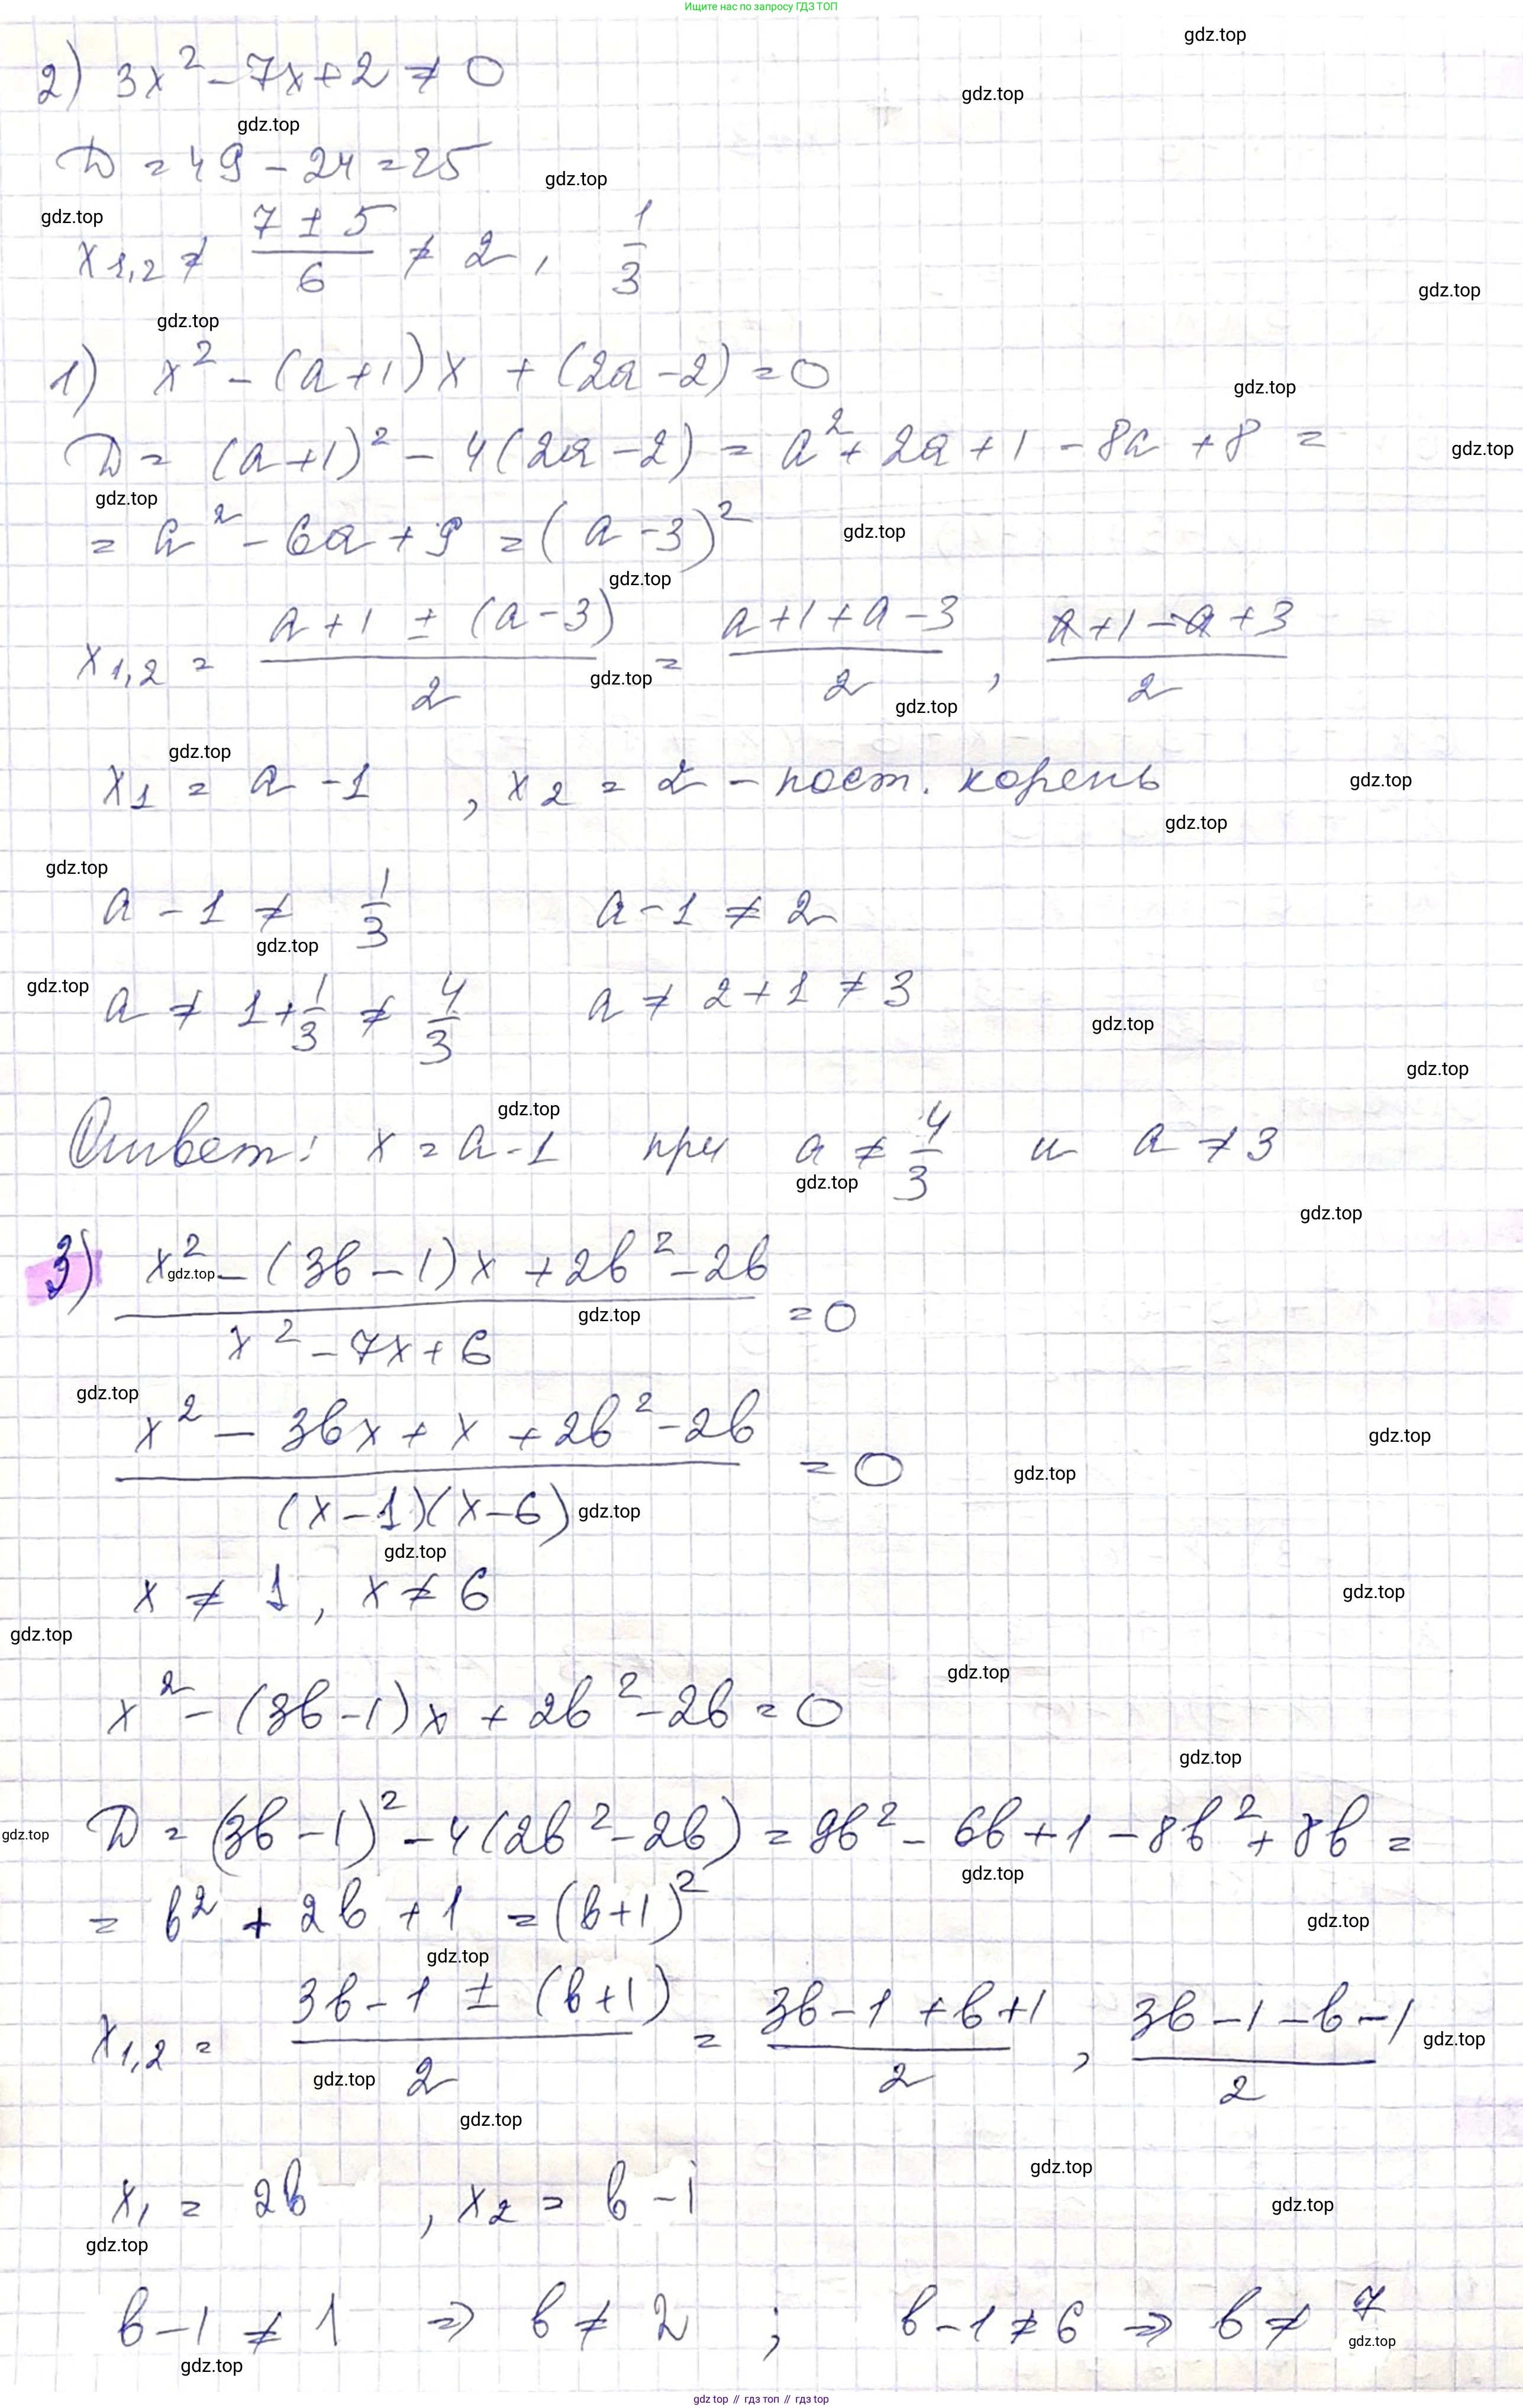 Ищите нас по запросу ГДЗ ТОП
gdz.top
2) 3x² - 7x + 2 ≠ 0
gdz.top
gdz.top
D = 49 - 24 = 25
gdz.top
gdz.top
x₁,₂ ≠ (7 ± 5)/6 ≠ 2, 1/3
gdz.top
gdz.top
1) x² - (a+1)x + (2a-2) = 0
gdz.top
D = (a+1)² - 4(2a-2) = a² + 2a + 1 - 8a + 8 =
gdz.top
gdz.top
= a² - 6a + 9 = (a-3)²
gdz.top
gdz.top
x₁,₂ = (a+1 ± (a-3))/2 = (a+1+a-3)/2, (a+1-a+3)/2
gdz.top
gdz.top
gdz.top
x₁ = a - 1, x₂ = 2 - пост. корень
gdz.top
gdz.top
gdz.top
a - 1 ≠ 1/3 a - 1 ≠ 2
gdz.top
gdz.top
a ≠ 1 + 1/3 ≠ 4/3 a ≠ 2 + 1 ≠ 3
gdz.top
gdz.top
gdz.top
Ответ: x = a - 1 при a ≠ 4/3 и a ≠ 3
gdz.top
gdz.top
3) (x² - (3b-1)x + 2b² - 2b)/(x² - 7x + 6) = 0
gdz.top
gdz.top
gdz.top
(x² - 3bx + x + 2b² - 2b)/((x-1)(x-6)) = 0
gdz.top
gdz.top
gdz.top
gdz.top
x ≠ 1, x ≠ 6
gdz.top
gdz.top
gdz.top
x² - (3b-1)x + 2b² - 2b = 0
gdz.top
gdz.top
D = (3b-1)² - 4(2b² - 2b) = 9b² - 6b + 1 - 8b² + 8b =
gdz.top
= b² + 2b + 1 = (b+1)²
gdz.top
gdz.top
x₁,₂ = (3b-1 ± (b+1))/2 = (3b-1+b+1)/2, (3b-1-b-1)/2
gdz.top
gdz.top
gdz.top
gdz.top
x₁ = 2b, x₂ = b - 1
gdz.top
gdz.top
b - 1 ≠ 1 ⇒ b ≠ 2; b - 1 ≠ 6 ⇒ b ≠ 7
gdz.top
gdz.top
gdz top // гдз топ // гдз top